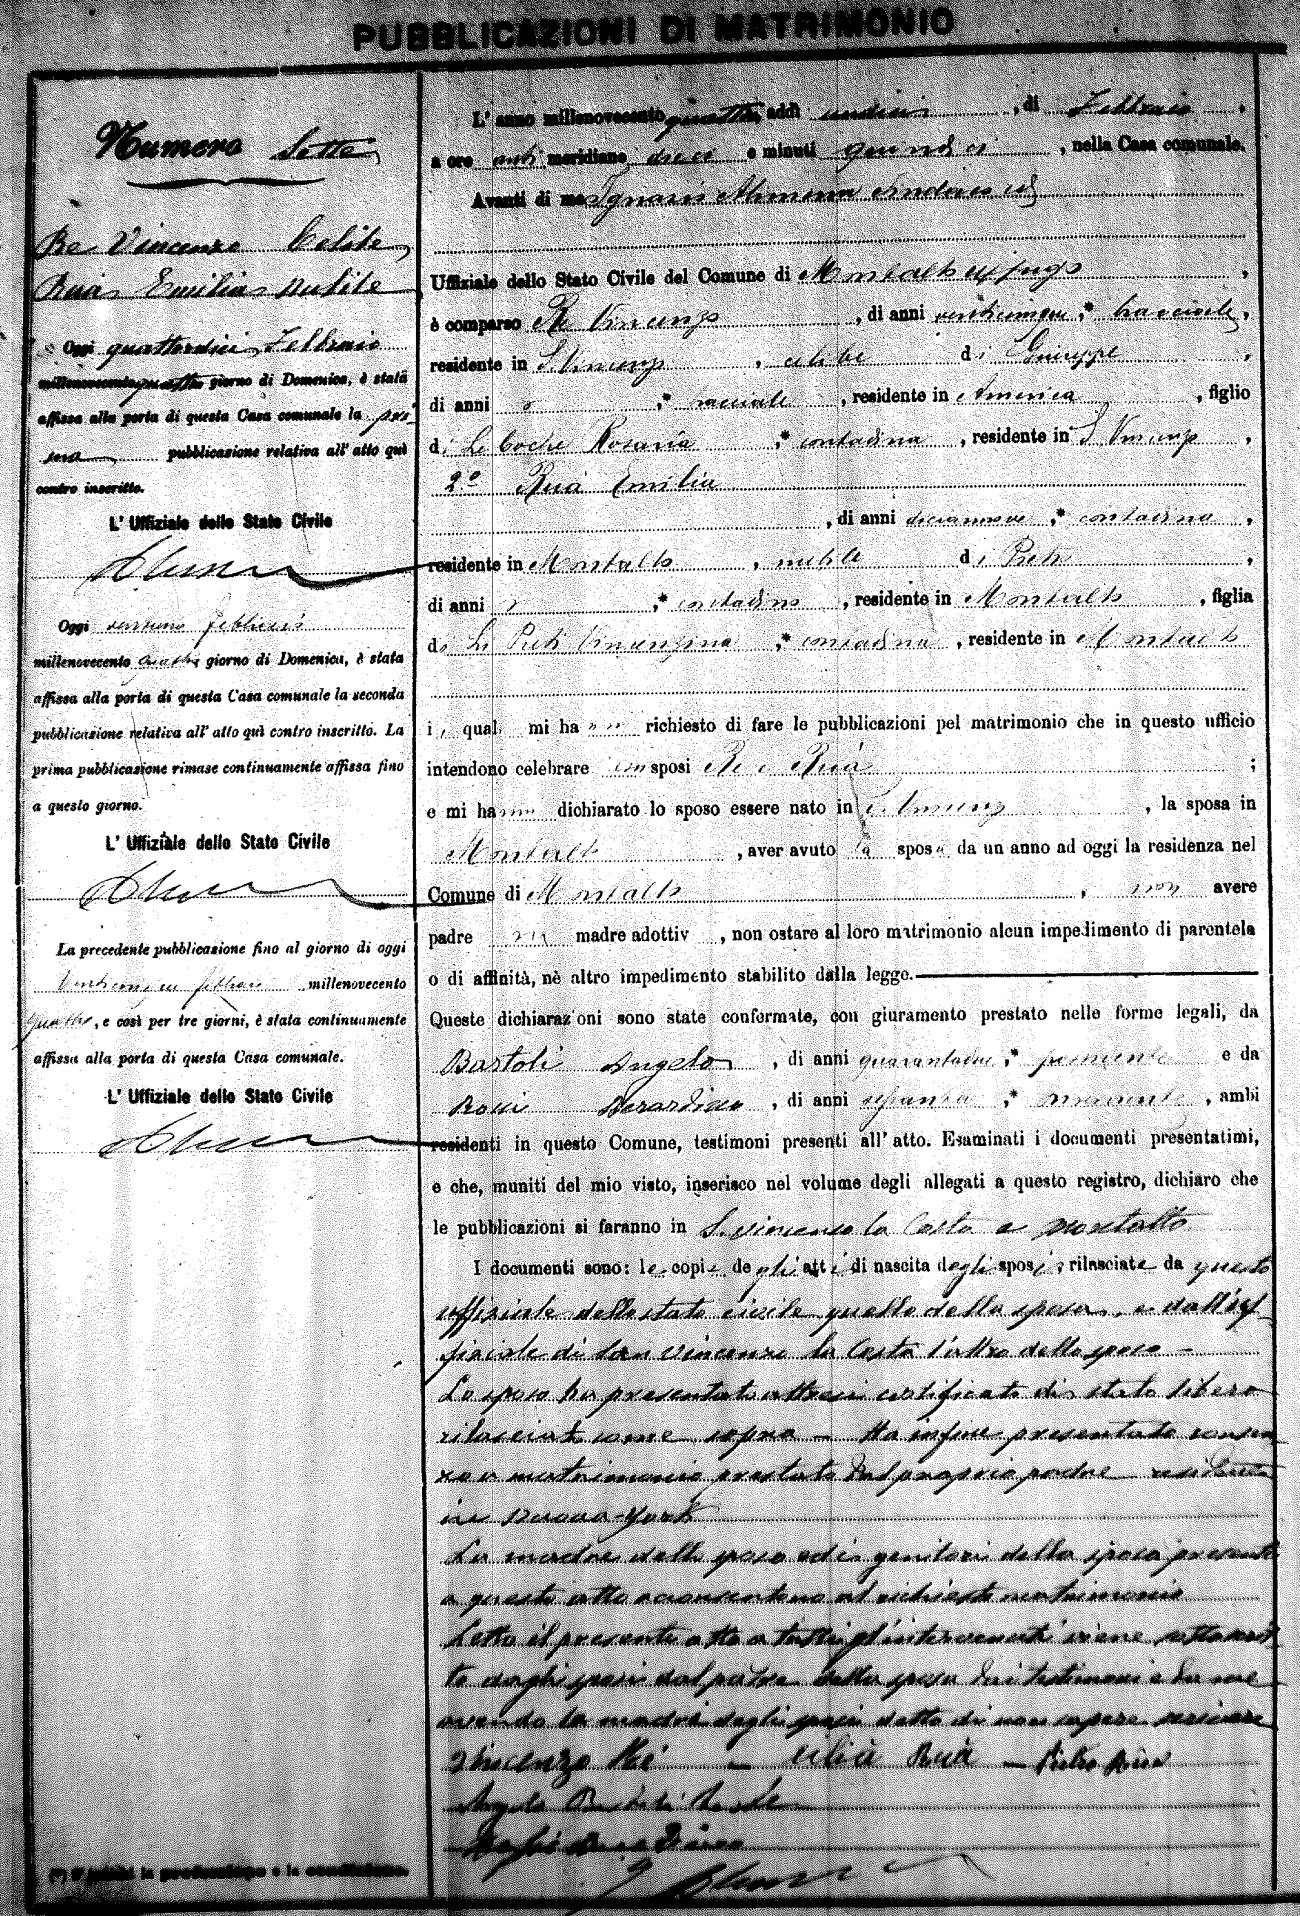 PUBBLICAZIONI DI MATRIMONIO
Numero Sette
Re Vincenzo Celibe
Ruà Emilia nubile
Oggi quattordici Febbraio
millenovecento quattro giorno di Domenica, è stata
affissa alla porta di questa Casa comunale la pri-
ma pubblicazione relativa all' atto quì
contro inscritto.
L' Uffiziale dello Stato Civile
Oggi ventuno febbraio
millenovecento quattro giorno di Domenica, è stata
affissa alla porta di questa Casa comunale la seconda
pubblicazione relativa all' atto quì contro inscritto. La
prima pubblicazione rimase continuamente affissa fino
a questo giorno.
L' Uffiziale dello Stato Civile
La precedente pubblicazione fino al giorno di oggi
Venticinque febbraio millenovecento
quattro, e così per tre giorni, è stata continuamente
affissa alla porta di questa Casa comunale.
L' Uffiziale dello Stato Civile
(*) la professione o la condizione.
L' anno millenovecento quattro, addì undici, di Febbraio,
a ore anti meridiane dieci e minuti quindici, nella Casa comunale.
Avanti di me Ignazio Alimena Sindaco ed
Uffiziale dello Stato Civile del Comune di Montalto Uffugo,
è comparso Re Vincenzo, di anni venticinque,* bracciale,
residente in S. Vincenzo, celibe di Giuseppe,
di anni ,* , residente in America, figlio
di Rosaria,* contadina, residente in S. Vincenzo,
2º Ruà Emilia
, di anni diciannove,* contadina,
residente in Montalto, nubile di Pietro,
di anni ,* contadino, residente in Montalto, figlia
di Vincenzina,* contadina, residente in Montalto
i quali mi hanno richiesto di fare le pubblicazioni pel matrimonio che in questo ufficio
intendono celebrare essi sposi Re e Ruà;
e mi hanno dichiarato lo sposo essere nato in S. Vincenzo, la sposa in
Montalto, aver avuto la sposa da un anno ad oggi la residenza nel
Comune di Montalto, non avere
padre nè madre adottiv , non ostare al loro matrimonio alcun impedimento di parentela
o di affinità, nè altro impedimento stabilito dalla legge.
Queste dichiarazioni sono state confermate, con giuramento prestato nelle forme legali, da
Bartoli Angelo, di anni quarantadue,* e da
Berardino, di anni ,* , ambi
residenti in questo Comune, testimoni presenti all' atto. Esaminati i documenti presentatimi,
e che, muniti del mio visto, inserisco nel volume degli allegati a questo registro, dichiaro che
le pubblicazioni si faranno in S. Vincenzo la Costa e Montalto
I documenti sono: le copie degli atti di nascita degli sposi, rilasciate da questo
uffiziale dello stato civile quello della sposa, e dall'uf-
fiziale di San Vincenzo la Costa l'altro dello sposo -
Lo sposo ha presentato altresì certificato di stato libero
rilasciato come sopra - Ha infine presentato consen-
so a matrimonio prestato dal proprio padre residente
in Nuova-York
La madre dello sposo ed i genitori della sposa presenti
a questo atto acconsentono al richiesto matrimonio
Letto il presente atto a tutti gl'intervenuti viene sottoscrit-
to dagli sposi dal padre della sposa dai testimoni e da me
avendo la madri degli sposi detto di non sapere scrivere
Vincenzo Re - Ruà - Pietro Ruà
Angelo Bartoli Teste